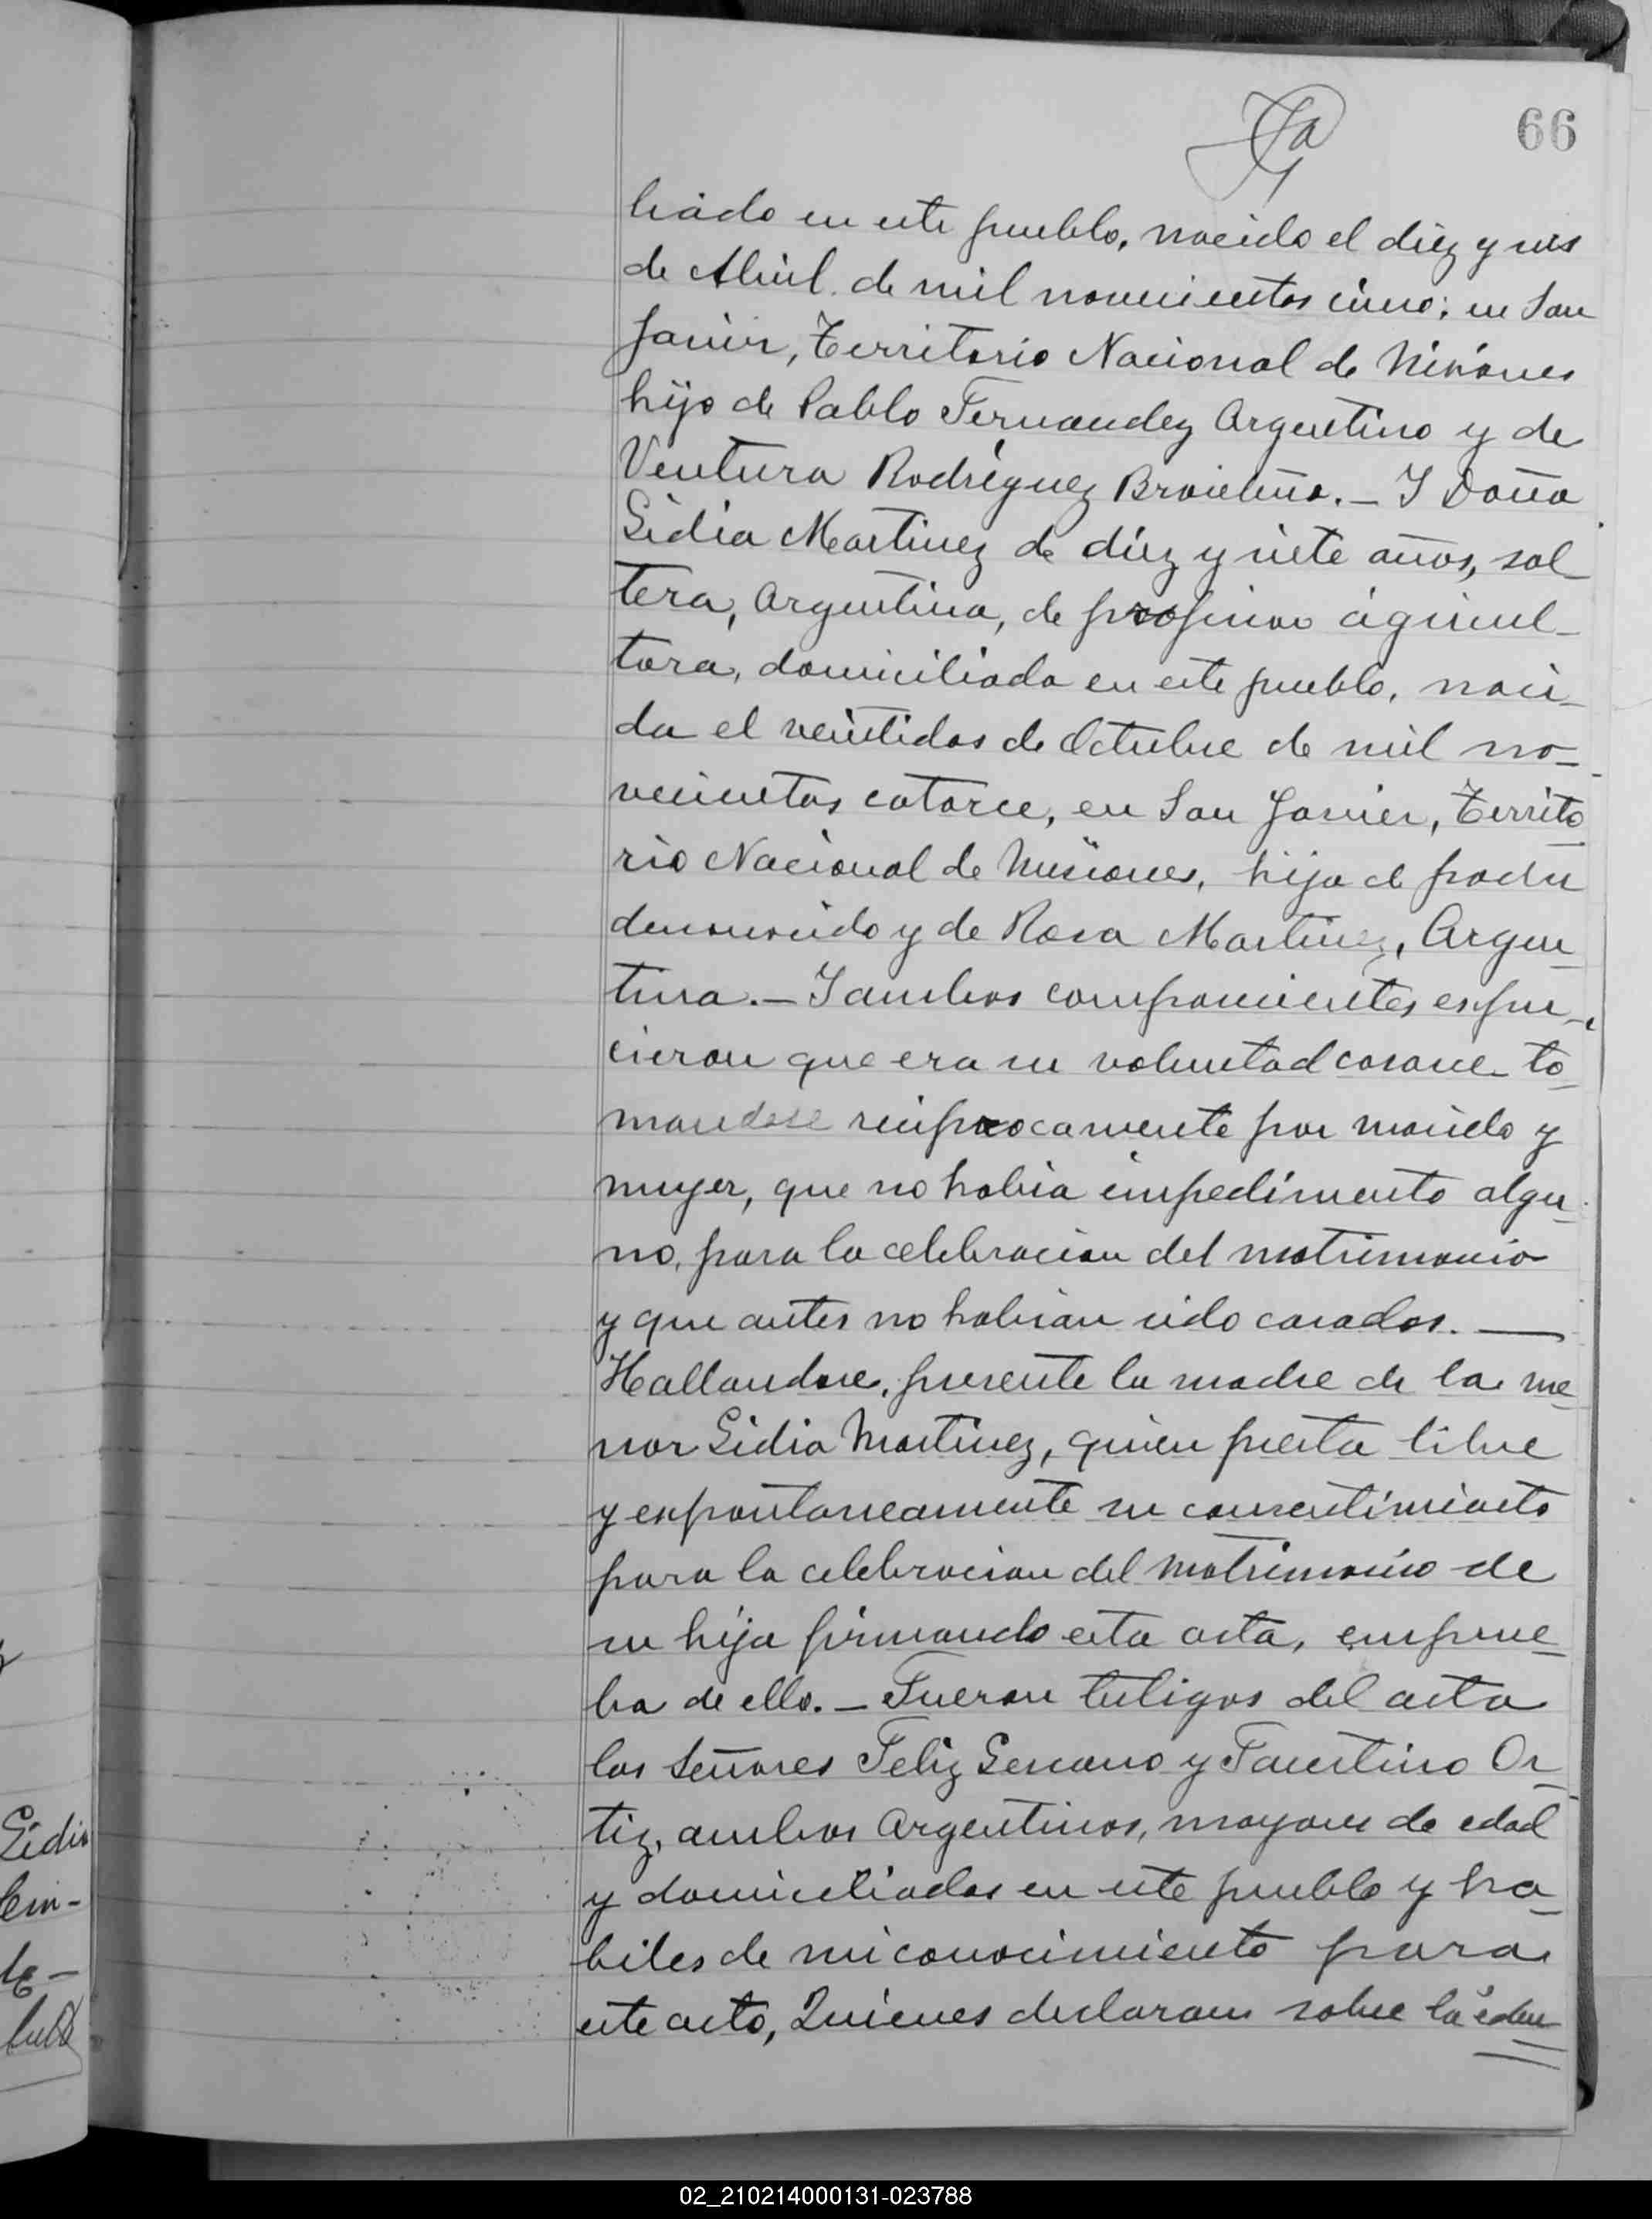 66
liado en este pueblo, nacido el diez y seis
de Abril de mil novecientos cinco; en San
Javier, Territorio Nacional de Misiones
hijo de Pablo Fernandez Argentino y de
Ventura Rodriguez Brasileña.- Y Doña
Lidia Martinez de diez y siete años, sol-
tera, Argentina, de profesion agricul-
tora, domiciliada en este pueblo, naci-
da el veintidos de Octubre de mil no-
vecientos catorce, en San Javier, Territo
rio Nacional de Misiones, hija de padre
desconocido y de Rosa Martinez, Argen
tina.- Y ambos comparecientes espu-
cieron que era su voluntad casarse to
mandose reciprocamente por marido y
mujer, que no habia impedimento algu
no, para la celebracion del matrimonio
y que antes no habian sido casados. —
Hallandose, presente la madre de la me
nor Lidia Martinez, quien presta libre
y espontaneamente su consentimiento
para la celebracion del matrimonio de
su hija firmando esta acta, en prue
ba de ello.- Fueron testigos del acta
los Señores Feliz Sercano y Faustino Or
tiz, ambos Argentinos, mayores de edad
y domiciliados en este pueblo y ha
biles de mi conocimiento para
este acto, Quienes declaran sobre la iden
Lidia
02_210214000131-023788